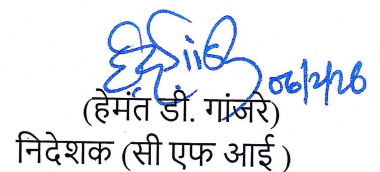 06/2/26
(हेमंत डी. गांजरे)
निदेशक (सी एफ आई )